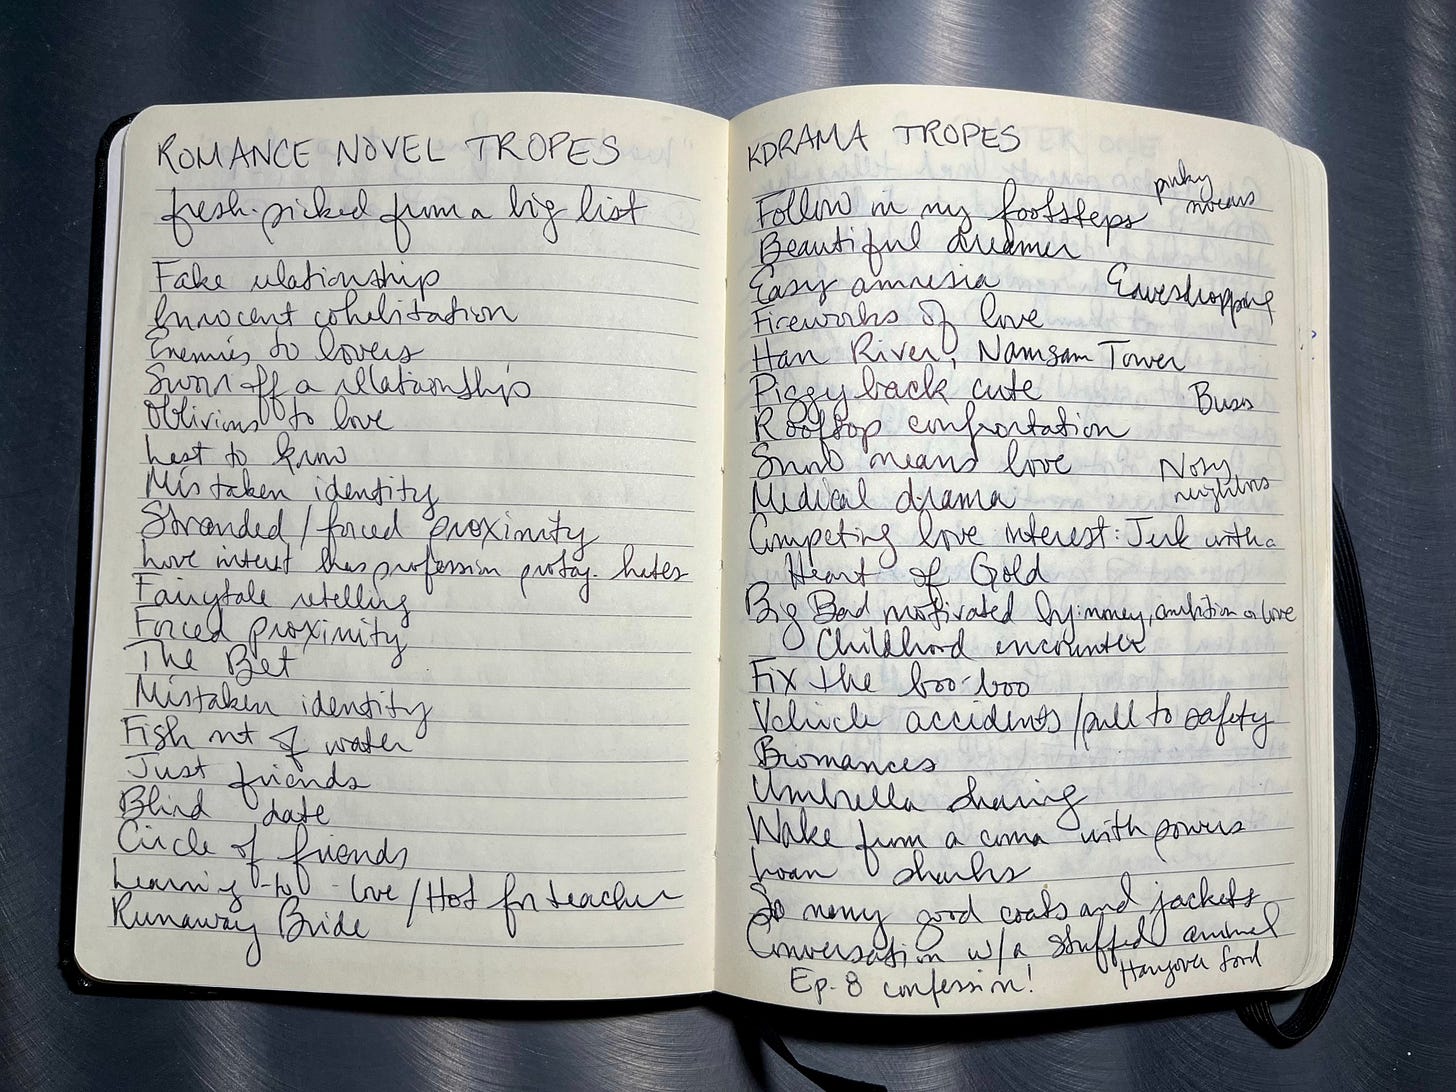 ROMANCE NOVEL TROPES
fresh-picked from a big list
Fake relationship
Innocent cohibitation
Enemies to lovers
Sworn off a relationship
Oblivious to love
Last to know
Mistaken identity
Stranded / forced proximity
Love interest has profession protag. hates
Fairytale retelling
Forced proximity
The Bet
Mistaken identity
Fish out of water
Just friends
Blind date
Circle of friends
Learning-to-love / Hot for teacher
Runaway Bride
KDRAMA TROPES
pinky
swears
Follow in my footsteps
Beautiful dreamer
Easy amnesia
Eavesdropping
Fireworks of love
Han River, Namsam Tower
Piggyback cute
Buses
Rooftop confrontation
Snub means love
Nosy
neighbors
Medical drama
Competing love interest: Jerk with a
Heart of Gold
Big Bad motivated by: money, ambition or love
Childhood encounter
Fix the boo-boo
Vehicle accidents / pull to safety
Bromances
Umbrella sharing
Wake from a coma with powers
Loan sharks
So many good coats and jackets
Conversation w/a stuffed animal
Hangover food
Ep. 8 confession!